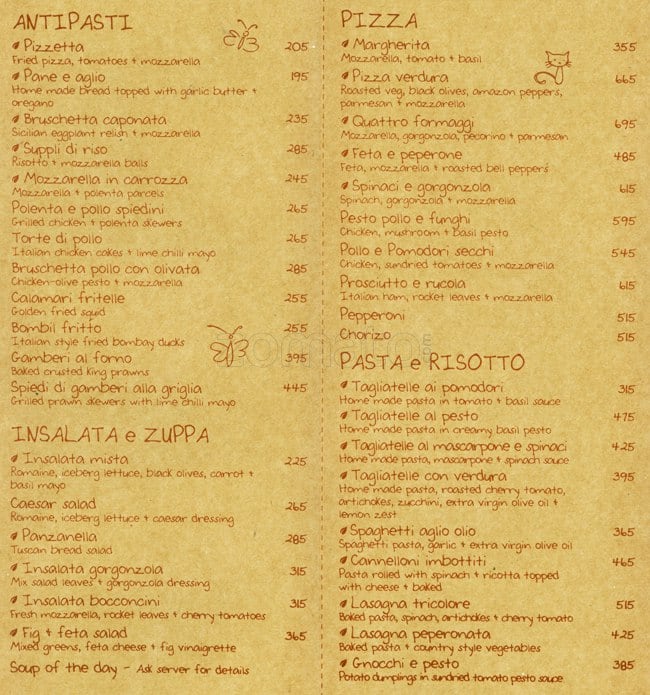 ANTIPASTI
Pizzetta 205
Fried pizza, tomatoes + mozzarella
Pane e aglio 195
Home made bread topped with garlic butter +
oregano
Bruschetta caponata 235
Sicilian eggplant relish + mozzarella
Suppli di riso 285
Risotto + mozzarella balls
Mozzarella in carrozza 245
Mozzarella + polenta parcels
Polenta e pollo spiedini 265
Grilled chicken + polenta skewers
Torte di pollo 265
Italian chicken cakes + lime chilli mayo
Bruschetta pollo con olivata 285
Chicken-olive pesto + mozzarella
Calamari fritelle 255
Golden fried squid
Bombil fritto 255
Italian style fried bombay ducks
Gamberi al forno 395
Baked crusted king prawns
Spiedi di gamberi alla griglia 445
Grilled prawn skewers with lime chilli mayo
INSALATA e ZUPPA
Insalata mista 225
Romaine, iceberg lettuce, black olives, carrot +
basil mayo
Caesar salad 265
Romaine, iceberg lettuce + caesar dressing
Panzanella 285
Tuscan bread salad
Insalata gorgonzola 315
Mix salad leaves + gorgonzola dressing
Insalata bocconcini 315
Fresh mozzarella, rocket leaves + cherry tomatoes
Fig + feta salad 365
Mixed greens, feta cheese + fig vinaigrette
Soup of the day - Ask server for details
PIZZA
Margherita 355
Mozzarella, tomato + basil
Pizza verdura 665
Roasted veg, black olives, amazon peppers,
parmesan + mozzarella
Quattro formaggi 695
Mozzarella, gorgonzola, pecorino + parmesan
Feta e peperone 485
Feta, mozzarella + roasted bell peppers
Spinaci e gorgonzola 615
Spinach, gorgonzola + mozzarella
Pesto pollo e funghi 595
Chicken, mushroom + basil pesto
Pollo e Pomodori secchi 545
Chicken, sundried tomatoes + mozzarella
Prosciutto e rucola 615
Italian ham, rocket leaves + mozzarella
Pepperoni 515
Chorizo 515
PASTA e RISOTTO
Tagliatelle ai pomodori 315
Home made pasta in tomato + basil sauce
Tagliatelle al pesto 475
Home made pasta in creamy basil pesto
Tagliatelle al mascarpone e spinaci 425
Home made pasta, mascarpone + spinach sauce
Tagliatelle con verdura 395
Home made pasta, roasted cherry tomato,
artichokes, zucchini, extra virgin olive oil +
lemon zest
Spaghetti aglio olio 365
Spaghetti pasta, garlic + extra virgin olive oil
Cannelloni imbottiti 465
Pasta rolled with spinach + ricotta topped
with cheese + baked
Lasagna tricolore 515
Baked pasta, spinach, artichokes + cherry tomato
Lasagna peperonata 425
Baked pasta + country style vegetables
Gnocchi e pesto 385
Potato dumplings in sundried tomato pesto sauce